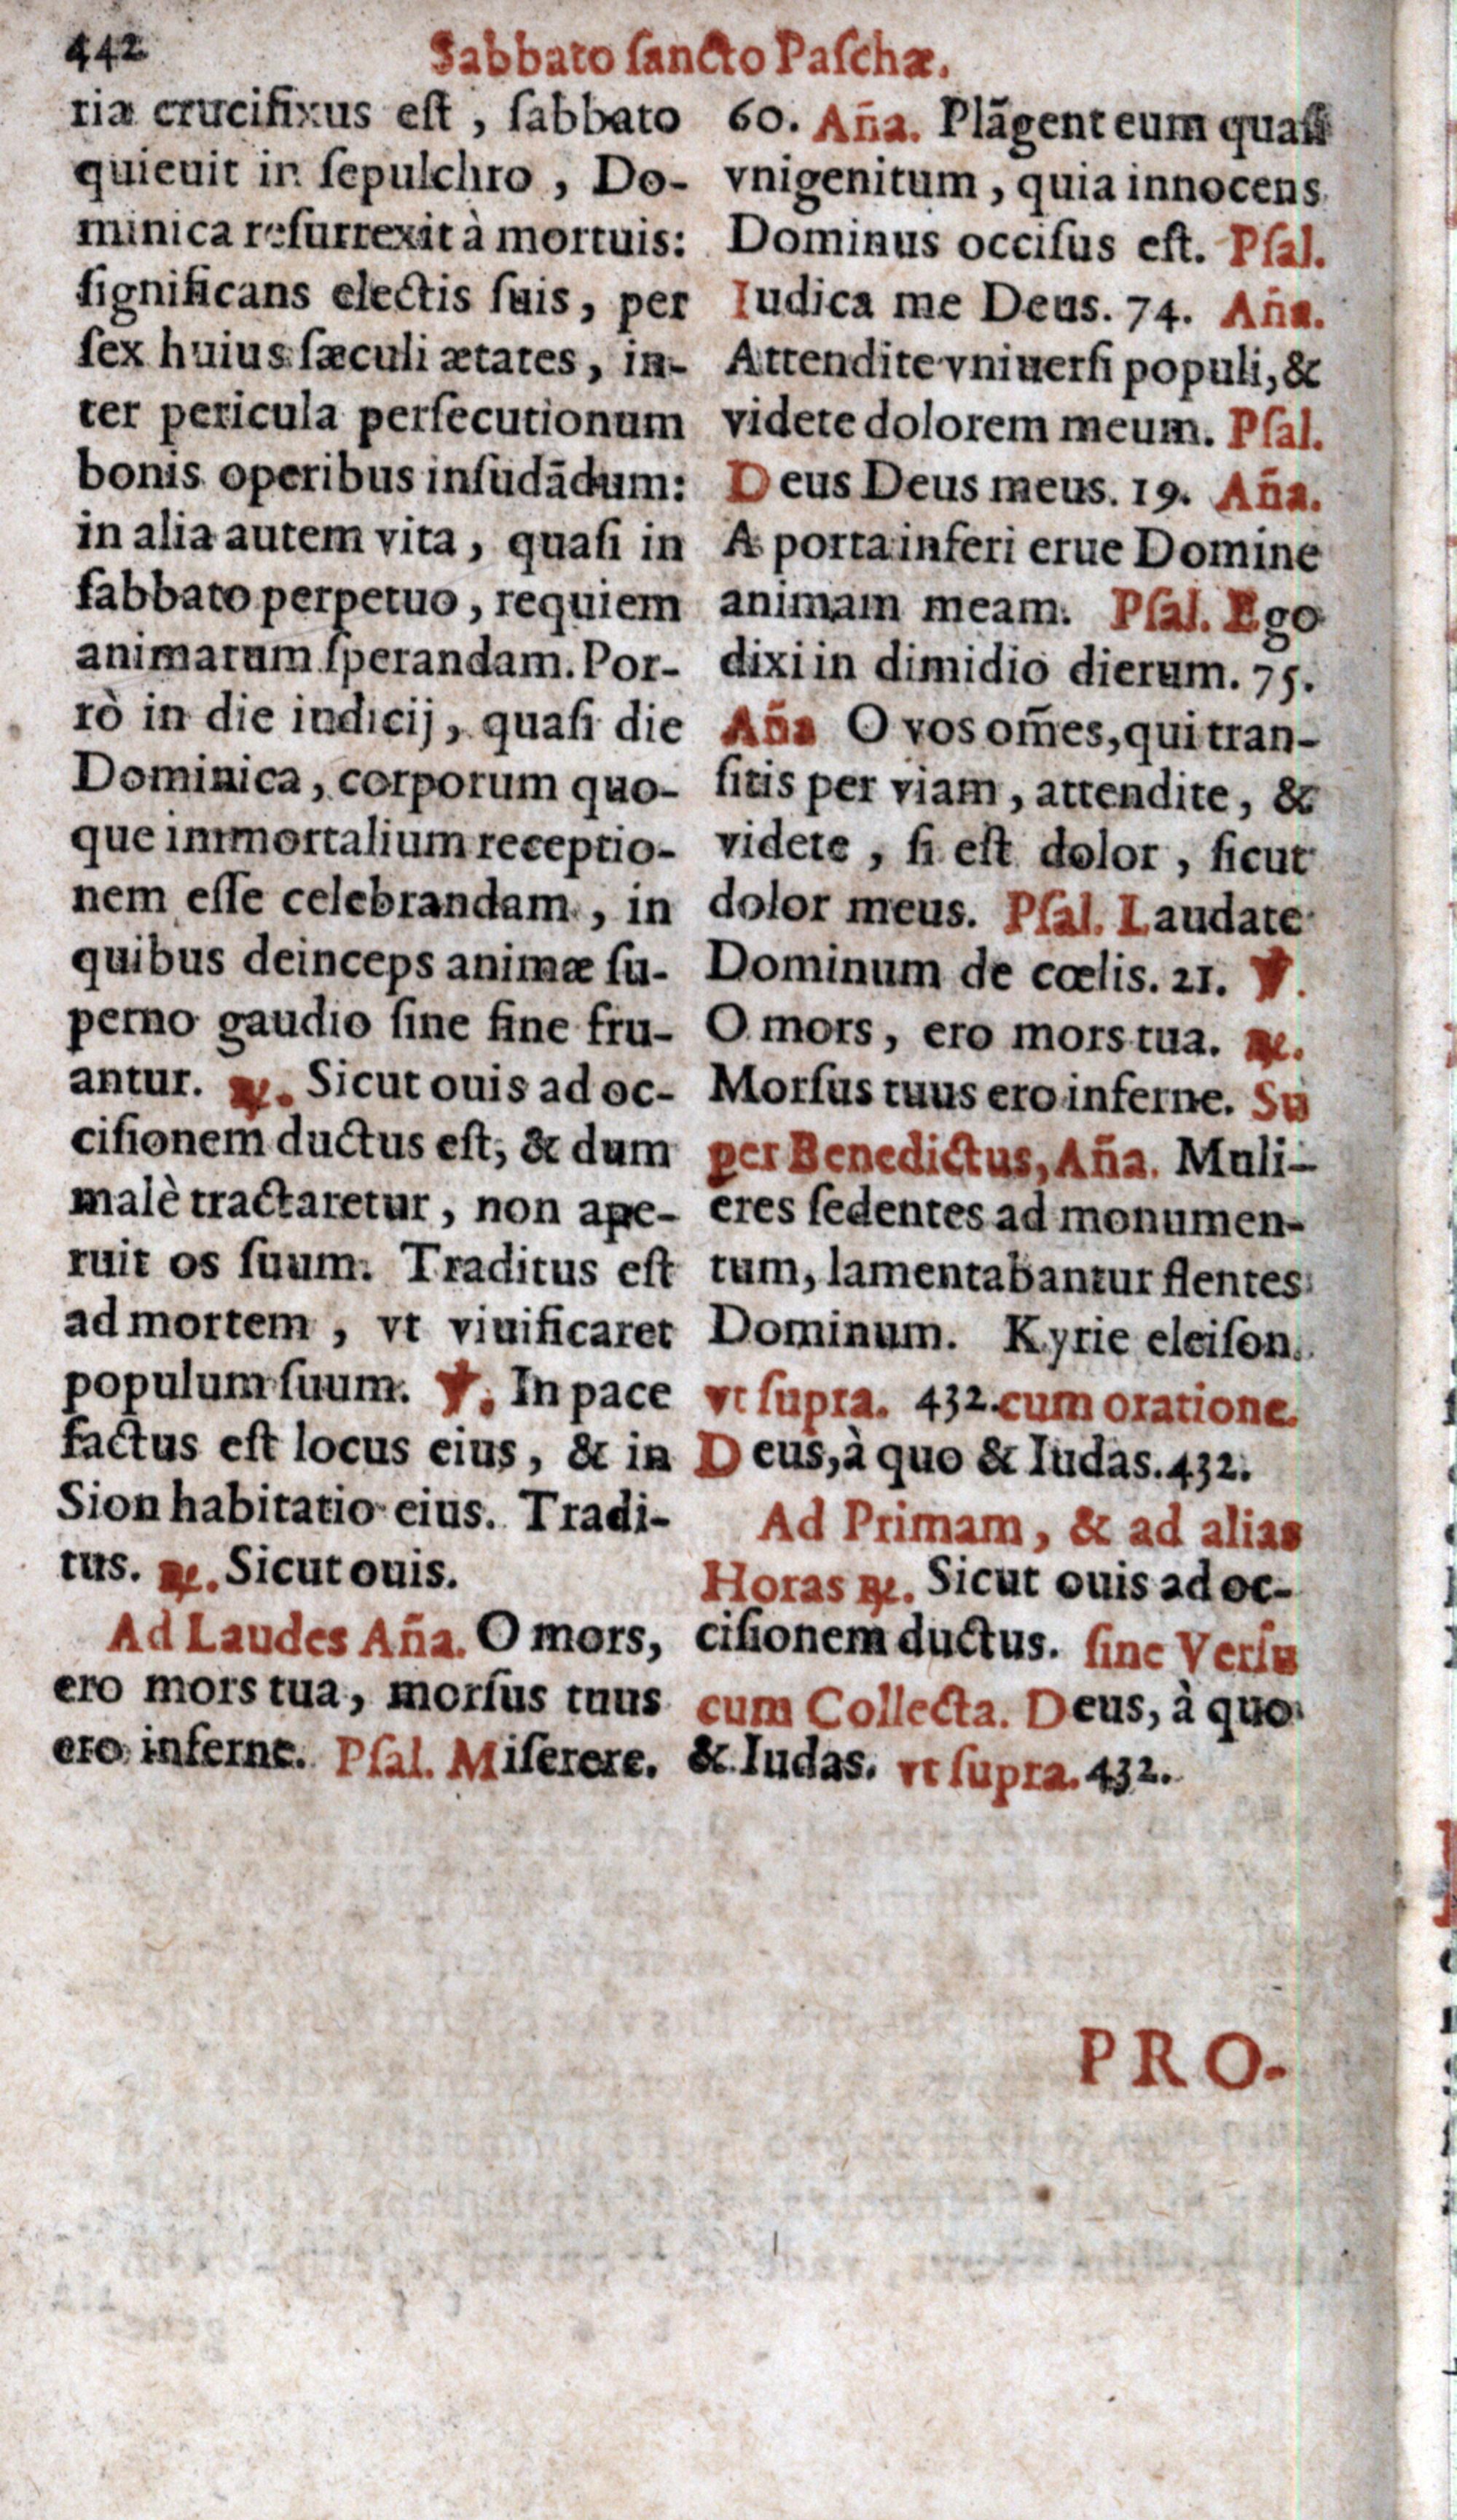 442 Sabbato ſancto Paſchæ.
riæ crucifixus eſt, ſabbato
quieuit in ſepulchro, Do-
minica reſurrexit à mortuis:
ſignificans electis ſuis, per
ſex huius ſæculi ætates, in-
ter pericula perſecutionum
bonis operibus inſudādum:
in alia autem vita, quaſi in
ſabbato perpetuo, requiem
animarum ſperandam. Por-
rò in die iudicij, quaſi die
Dominica, corporum quo-
que immortalium receptio-
nem eſſe celebrandam, in
quibus deinceps animæ ſu-
perno gaudio ſine fine fru-
antur. ℟. Sicut ouis ad oc-
ciſionem ductus eſt, & dum
malè tractaretur, non ape-
ruit os ſuum. Traditus eſt
ad mortem, vt viuificaret
populum ſuum. ℣. In pace
factus eſt locus eius, & in
Sion habitatio eius. Tradi-
tus. ℟. Sicut ouis.
Ad Laudes Aña. O mors,
ero mors tua, morſus tuus
ero inferne. Pſal. Miſerere.
60. Aña. Plāgent eum quaſi
vnigenitum, quia innocens
Dominus occiſus eſt. Pſal.
Iudica me Deus. 74. Aña.
Attendite vniuerſi populi, &
videte dolorem meum. Pſal.
Deus Deus meus. 19. Aña.
A porta inferi erue Domine
animam meam. Pſal. Ego
dixi in dimidio dierum. 75.
Aña O vos om̃es, qui tran-
ſitis per viam, attendite, &
videte, ſi eſt dolor, ſicut
dolor meus. Pſal. Laudate
Dominum de cœlis. 21. ℣.
O mors, ero mors tua. ℟.
Morſus tuus ero inferne. Su
per Benedictus, Aña. Muli-
eres ſedentes ad monumen-
tum, lamentabantur flentes
Dominum. Kyrie eleiſon.
vt ſupra. 432. cum oratione.
Deus, à quo & Iudas. 432.
Ad Primam, & ad alias
Horas ℟. Sicut ouis ad oc-
ciſionem ductus. ſine Verſu
cum Collecta. Deus, à quo
& Iudas. vt ſupra. 432.
PRO-